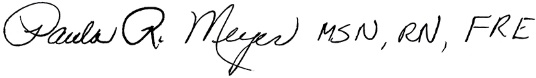 Paula R. Meyer MSN, RN, FRE